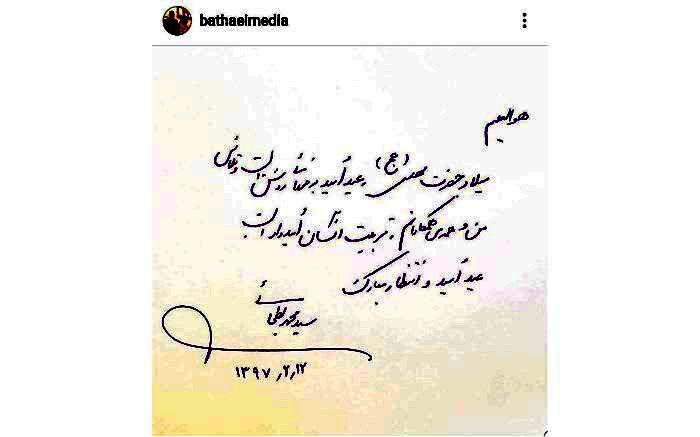 bathaeimedia
هو العلیم
میلاد حضرت مهدی (عج)، عید امید بر فردای روشن است و تلاش
من و همه همکارانم تربیت انسان امیدوار است
عید امید و انتظار مبارک
سید محمد بطحائی
۱۳۹۷٫۲٫۱۲